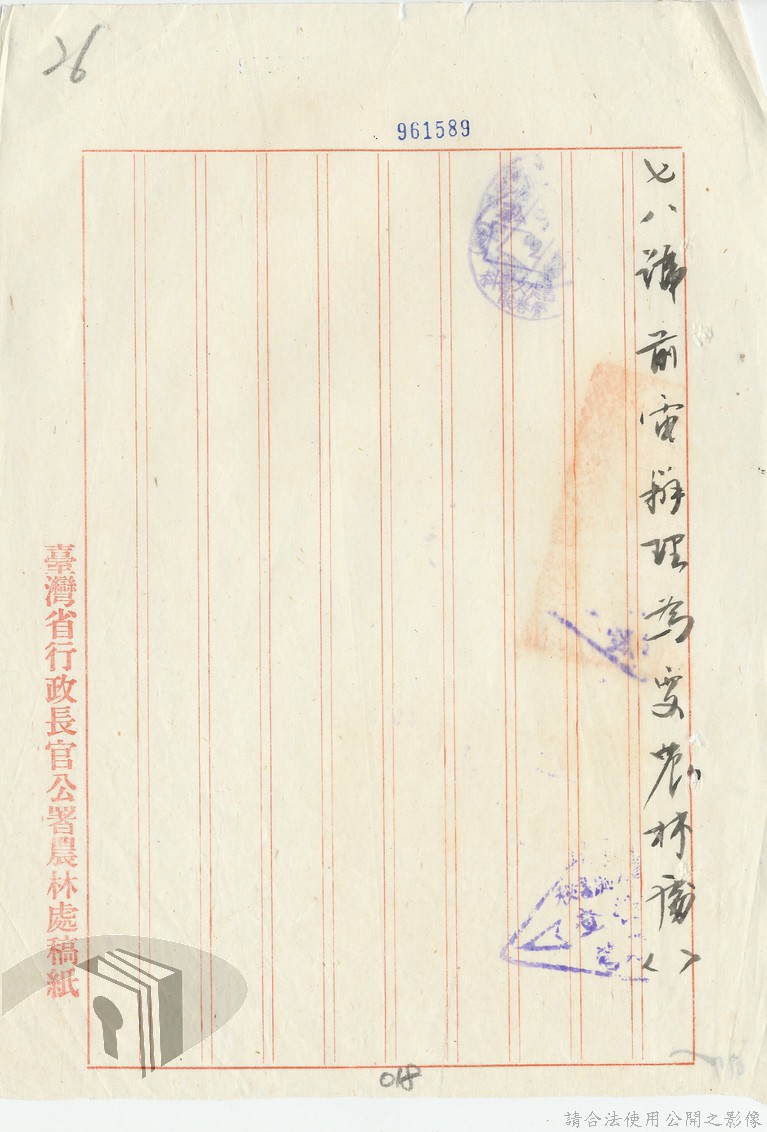 26
961589
七八號前電辦理為要農林處()
臺灣省行政長官公署農林處稿紙
018
請合法使用公開之影像